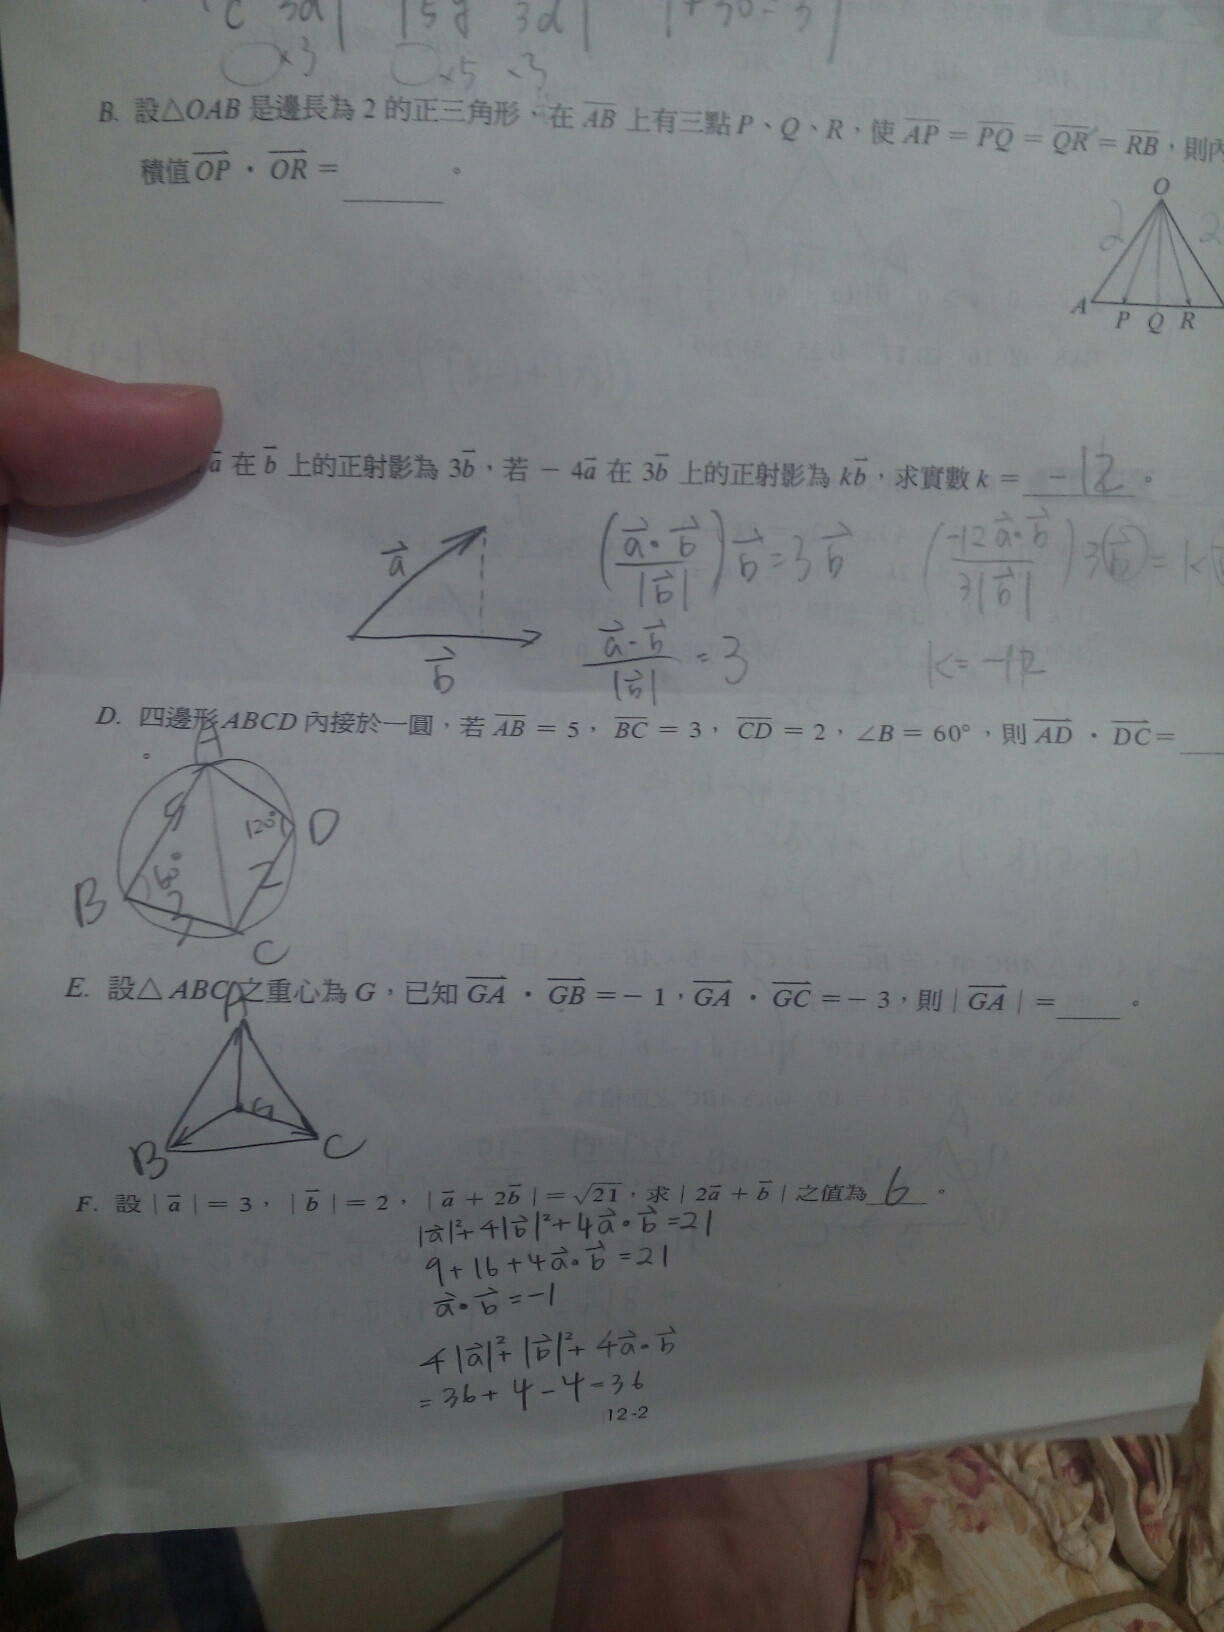 C 3d| |5g 3d| 1+30=3|
×3 ×5 ×3
B. 設△OAB 是邊長為 2 的正三角形,在 AB 上有三點 P、Q、R,使 AP = PQ = QR = RB,則內
積值 OP · OR = ______ 。
O
2 2
A P Q R
a 在 b 上的正射影為 3b,若 − 4a 在 3b 上的正射影為 kb,求實數 k = -12 。
a
b
(a·b/|b|) b = 3b
(-12a·b/3|b|) 3(b) = k
a·b/|b| = 3
k=-12
D. 四邊形 ABCD 內接於一圓,若 AB = 5, BC = 3, CD = 2,∠B = 60°,則 AD · DC = ___
。
A
5 120° D
B 60° 2
3
C
E. 設△ ABC 之重心為 G,已知 GA · GB = − 1,GA · GC = − 3,則 | GA | = ____ 。
A
G
B C
F. 設 | a | = 3, | b | = 2, | a + 2b | = √21,求 | 2a + b | 之值為 6 。
|a|²+4|b|²+4a·b=21
9+16+4a·b=21
a·b=-1
4|a|²+|b|²+4a·b
=36+4-4=36
12-2